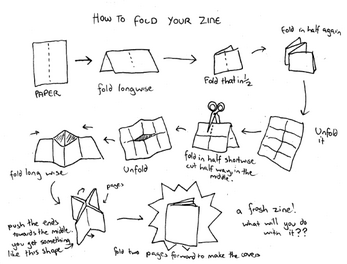 HOW TO FOLD YOUR ZINE
PAPER
fold longwise
Fold that in 1/2
Fold in half again
Unfold
it
fold in half shortwise
cut half way in the
middle.
Unfold
fold long wise
push the ends
towards the middle.
you get something
like this shape
pages
fold two pages forward to make the covers
a fresh zine!
what will you do
with it??